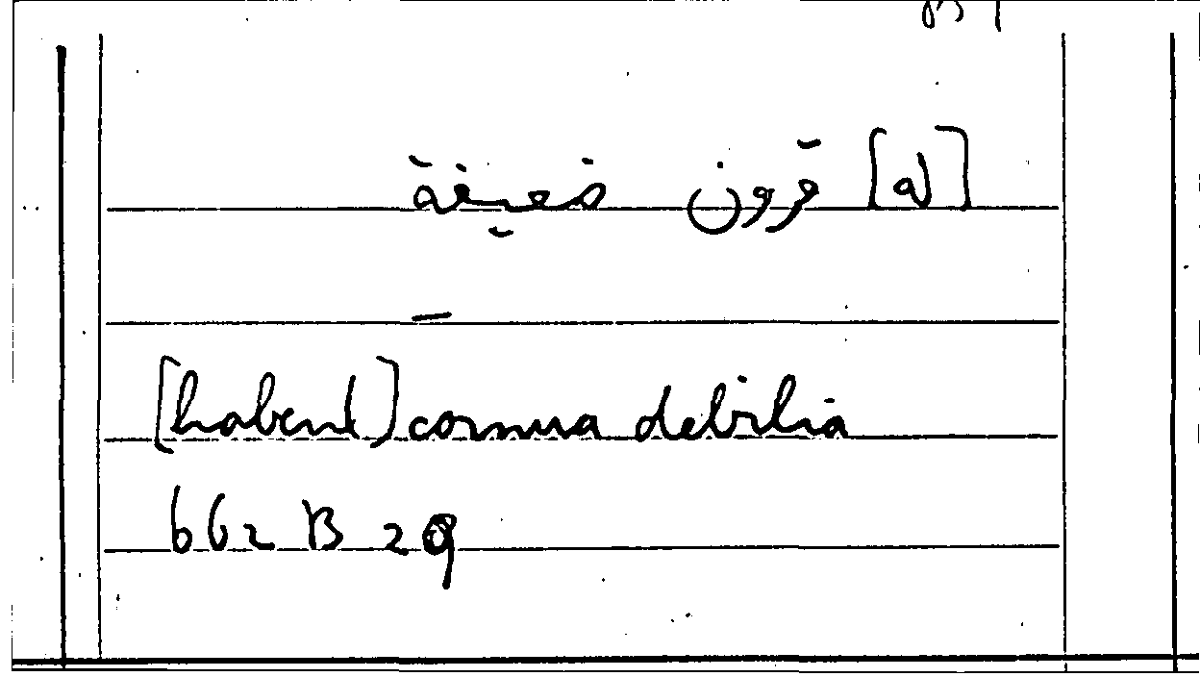 [له] قرون ضعيفة
[habent] cornua debilia
662 B 29